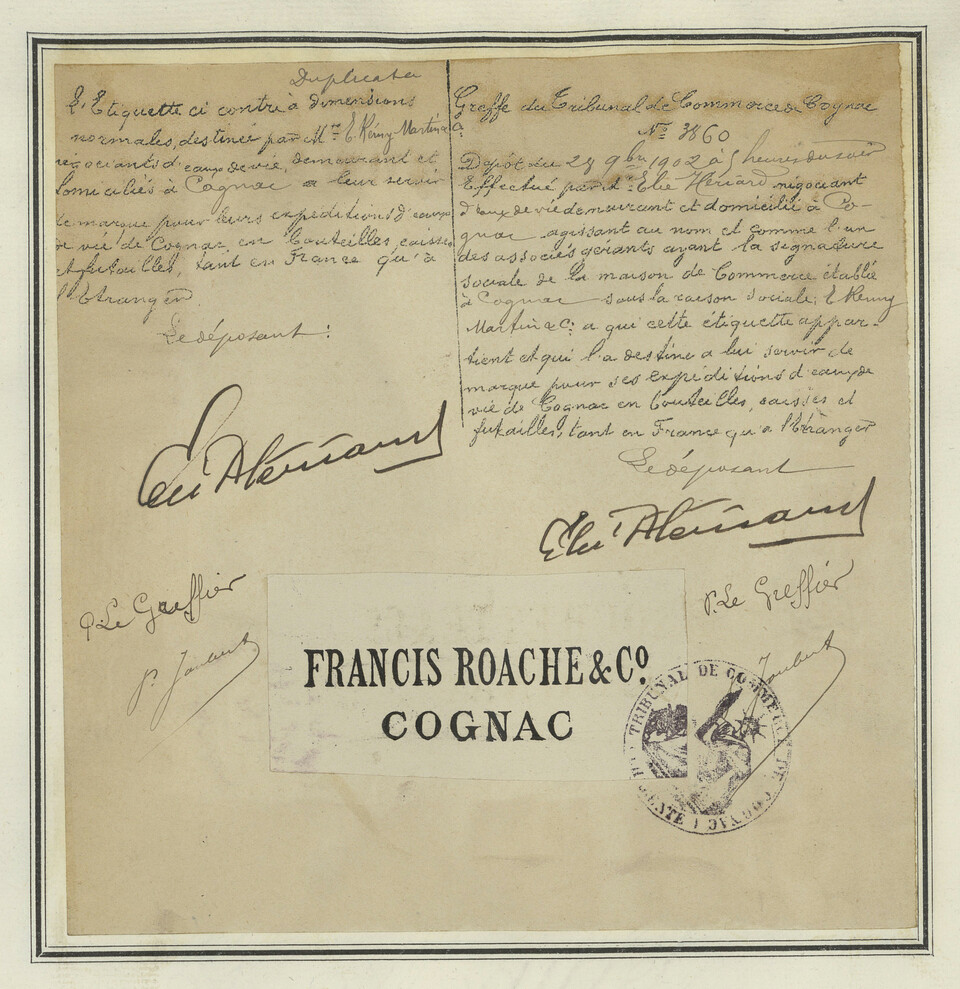 Duplicata
L'Etiquette ci contre à dimensions
normales, destinée par Mrs E. Rémy Martin & Co
négociants d'eaux de vie, demeurant et
domiciliés à Cognac a leur servir
de marque pour leurs expeditions d'eaux
de vie de Cognac, en bouteilles, caisses
et futailles, tant en France qu'à
l'Etranger
Le déposant :
Elie Hériard
P. Le Greffier
P. Joubert
Greffe du Tribunal de Commerce de Cognac
No 3860
Dépôt du 29 9bre 1902 à 5 heures du soir
Effectué par Mr Elie Hériard négociant
d'eaux de vie demeurant et domicilié à Co-
gnac agissant au nom et comme l'un
des associés gérants ayant la signature
sociale de la maison de Commerce établie
à Cognac sous la raison sociale, E Remy
Martin & Co a qui cette étiquette appar-
tient et qui l'a destine a lui servir de
marque pour ses expéditions d'eaux de
vie de Cognac en bouteilles, caisses et
futailles, tant en France qu'a l'Etranger
Le déposant
Elie Hériard
P. Le Greffier
Joubert
FRANCIS ROACHE & Co.
COGNAC
TRIBUNAL DE COMMERCE DE COGNAC